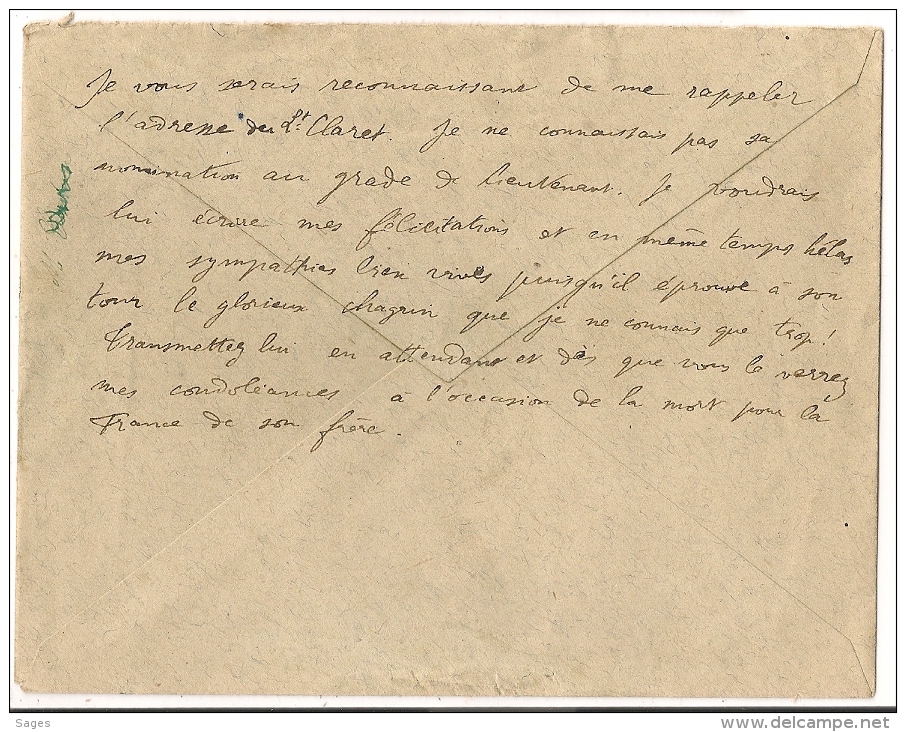 Je vous serais reconnaissant de me rappeler
l'adresse du Lt. Claret. Je ne connaissais pas sa
nomination au grade de lieutenant. Je voudrais
lui écrire mes félicitations et en même temps hélas
mes sympathies bien vives puisqu'il éprouve à son
tour le glorieux chagrin que je ne connais que trop!
Transmettez lui en attendant et dès que vous le verrez
mes condoléances à l'occasion de la mort pour la
France de son frère.
Sages
www.delcampe.net